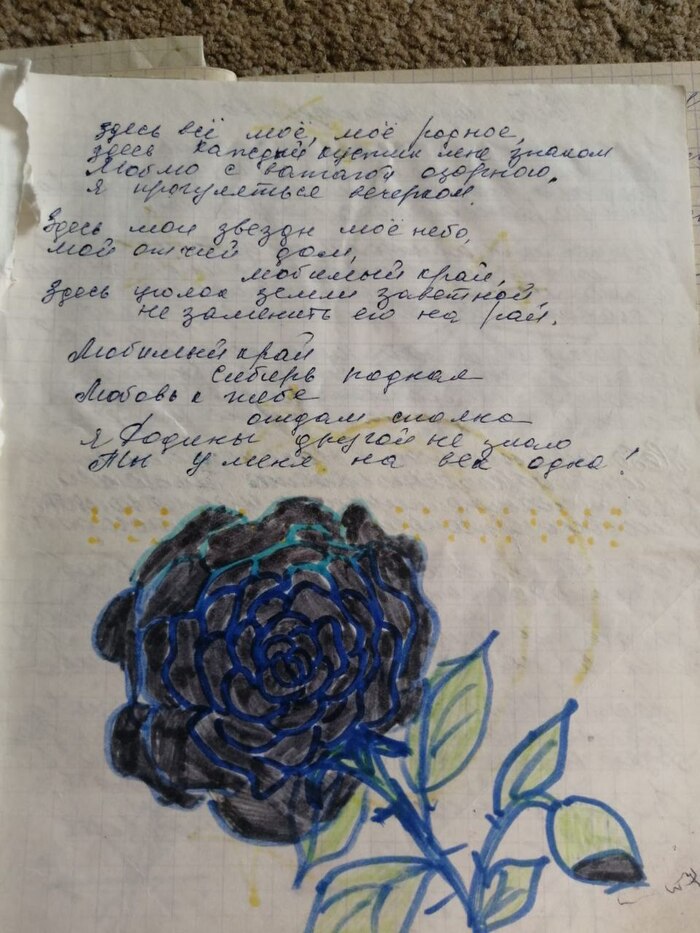 здесь всё моё, моё родное,
здесь каждый кустик мне знаком
Люблю с ватагой озорною,
я прогуляться вечерком.
Здесь мои звезды моё небо,
мой отчий дом,
любимый край,
Здесь уголок земли заветной,
не заменить его на рай.
Любимый край
Сибирь родная
Любовь к тебе
отдам сполна
я Родины другой не знаю
Ты у меня на век одна!